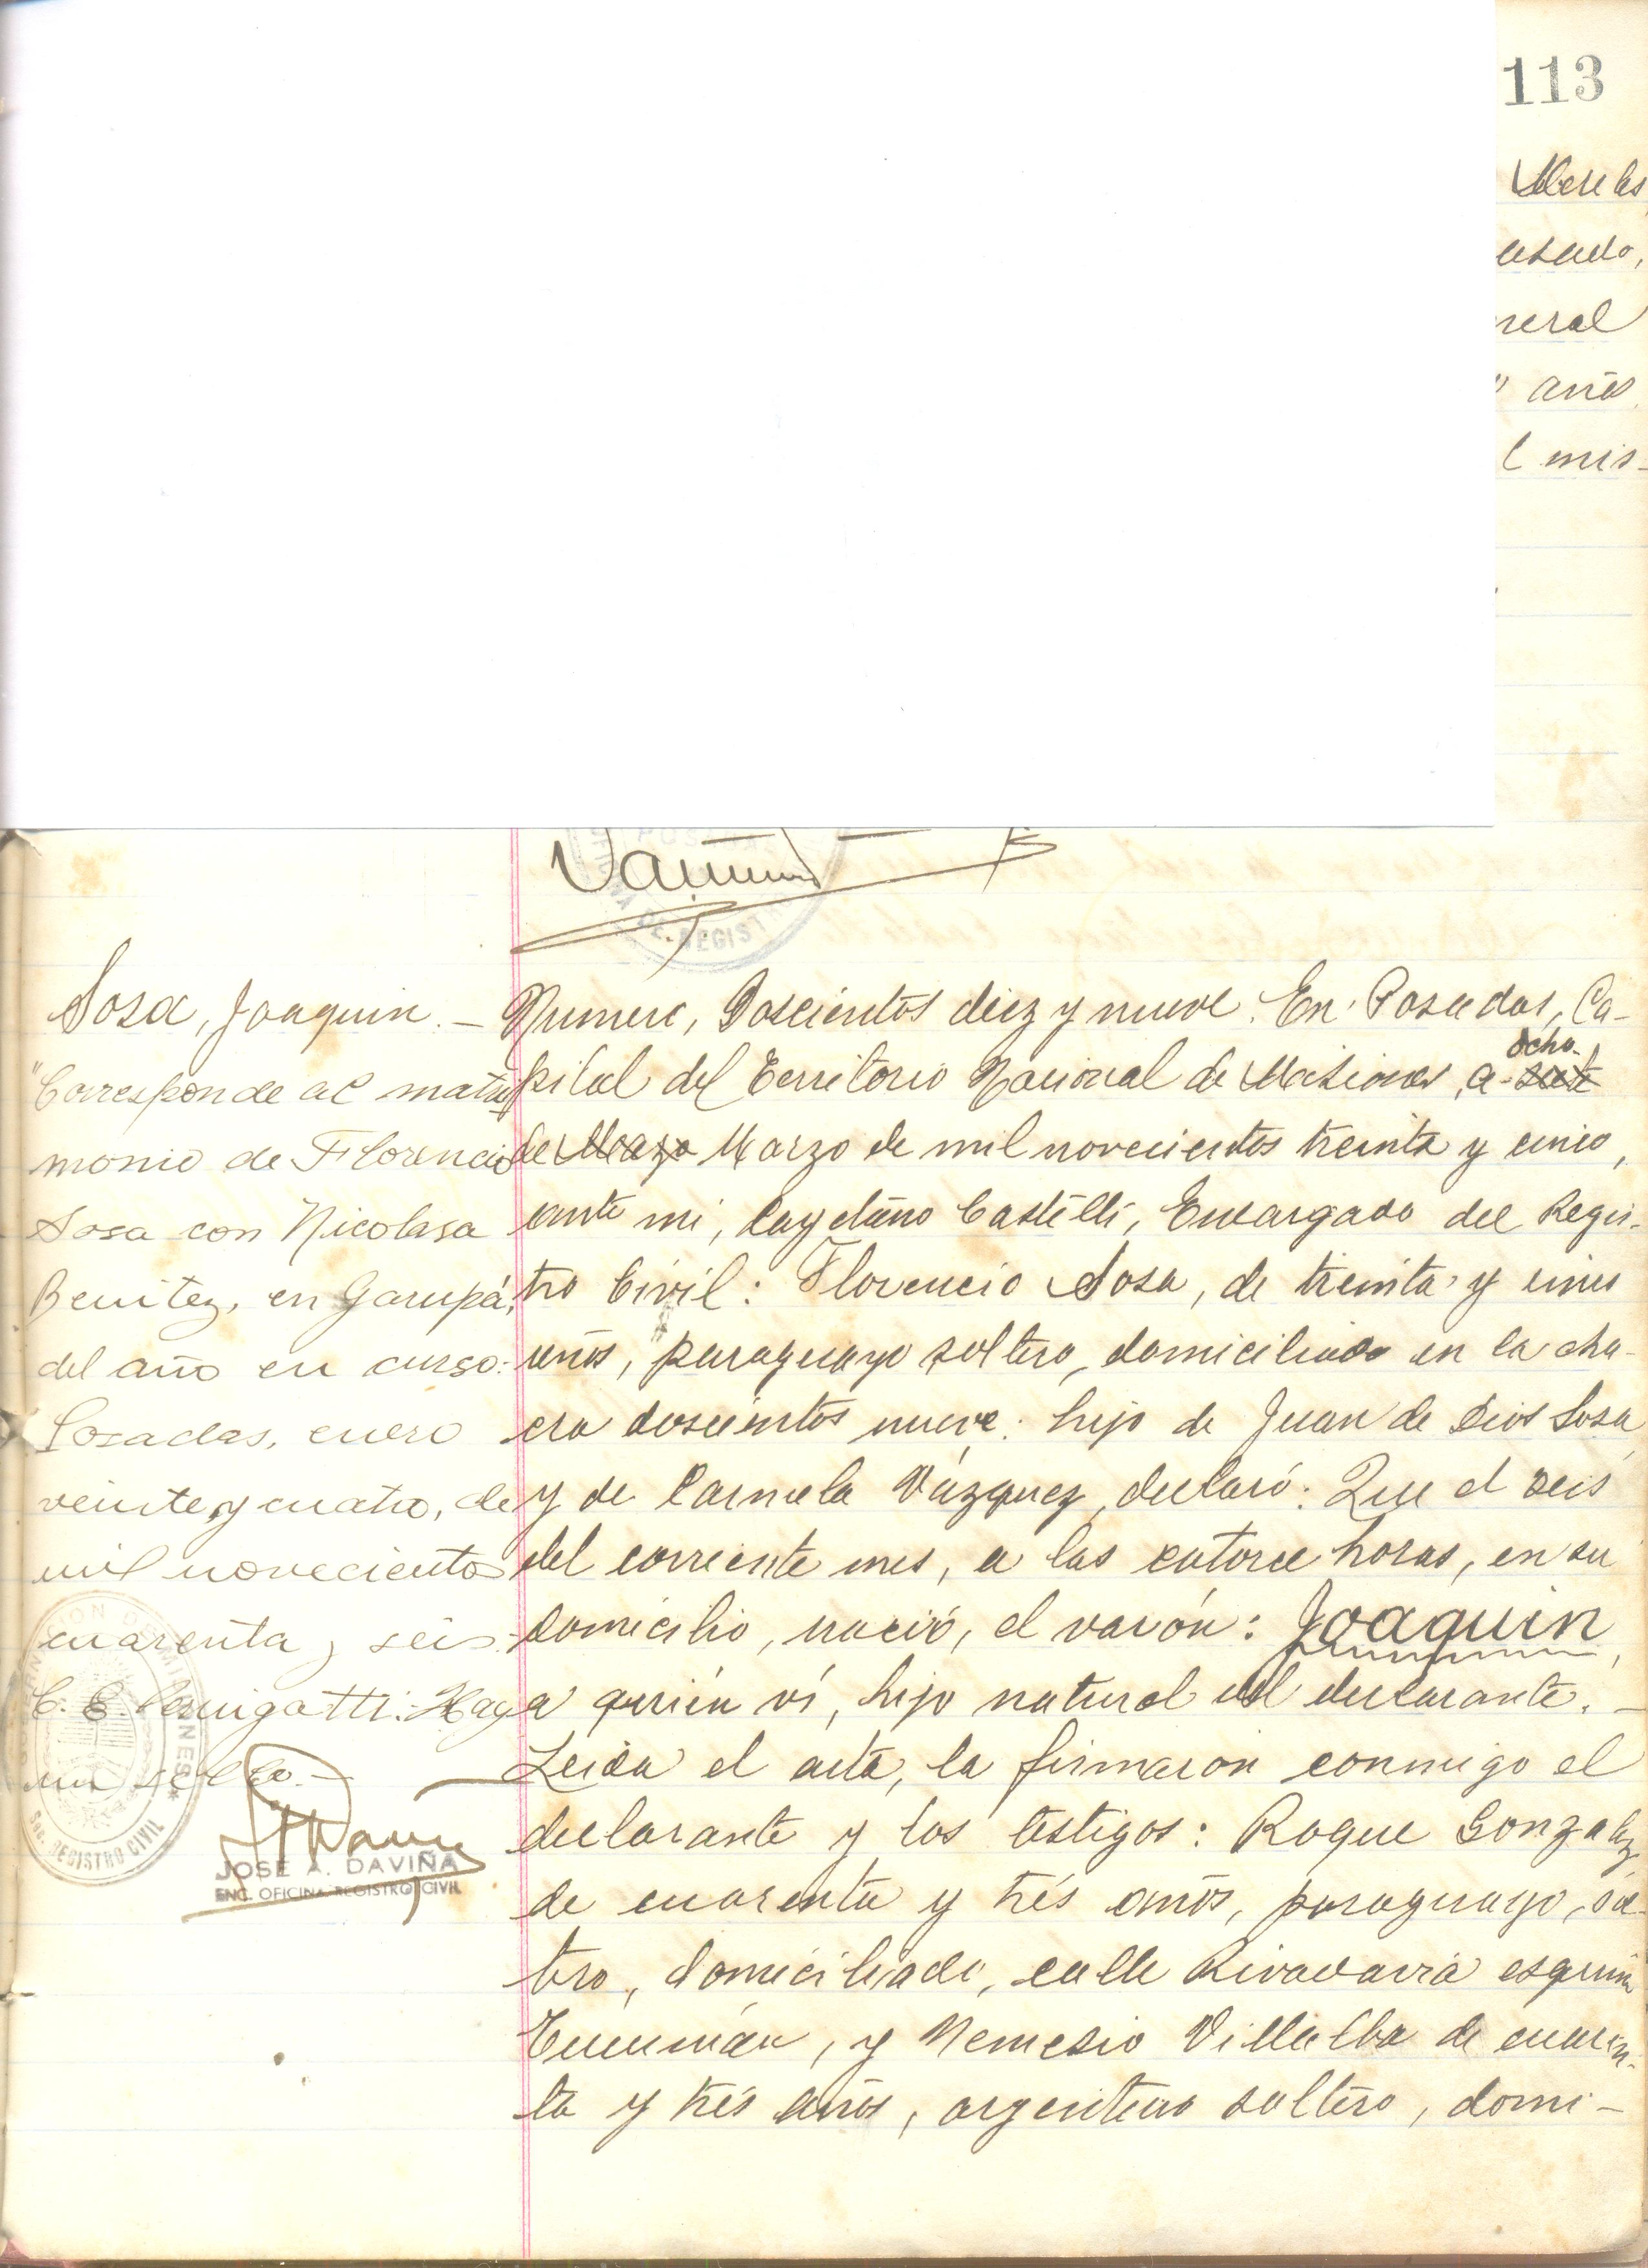 113
Mereles
asado,
neral
años
l mis-
Sosa, Joaquin. -
"Corresponde al matri
monio de Florencio
Sosa con Nicolasa
Benitez, en Garupá,
del año en curso.
Posadas, enero
veinte y cuatro, de
mil novecientos
cuarenta y seis.
Hay
un sello. -
JOSE A. DAVIÑA
ENC. OFICINA REGISTRO CIVIL
REGISTRO CIVIL
DE REGIST
Numero, Doscientos diez y nueve. En Posadas, Ca-
ocho.
pital del Territorio Nacional de Misiones, a siete
de Marzo de mil novecientos treinta y cinco,
ante mi, Cayetano Castelli, Encargado del Regis-
tro Civil: Florencio Sosa, de treinta y cinco
años, paraguayo soltero, domiciliado en la cha-
cra doscientos nueve; hijo de Juan de Dios Sosa
y de Carmela Vázquez, declaró: Que el seis
del corriente mes, a las catorce horas, en su
domicilio, nació, el varón: Joaquin,
a quién ví, hijo natural del declarante. -
Leida el acta, la firmaron conmigo el
declarante y los testigos: Roque Gonzalez,
de cuarenta y trés años, paraguayo, sol-
tero, domiciliado, calle Rivadavia esquina
Tucumán, y Nemesio Villalba de cuaren-
ta y trés años, argentino soltero, domi-